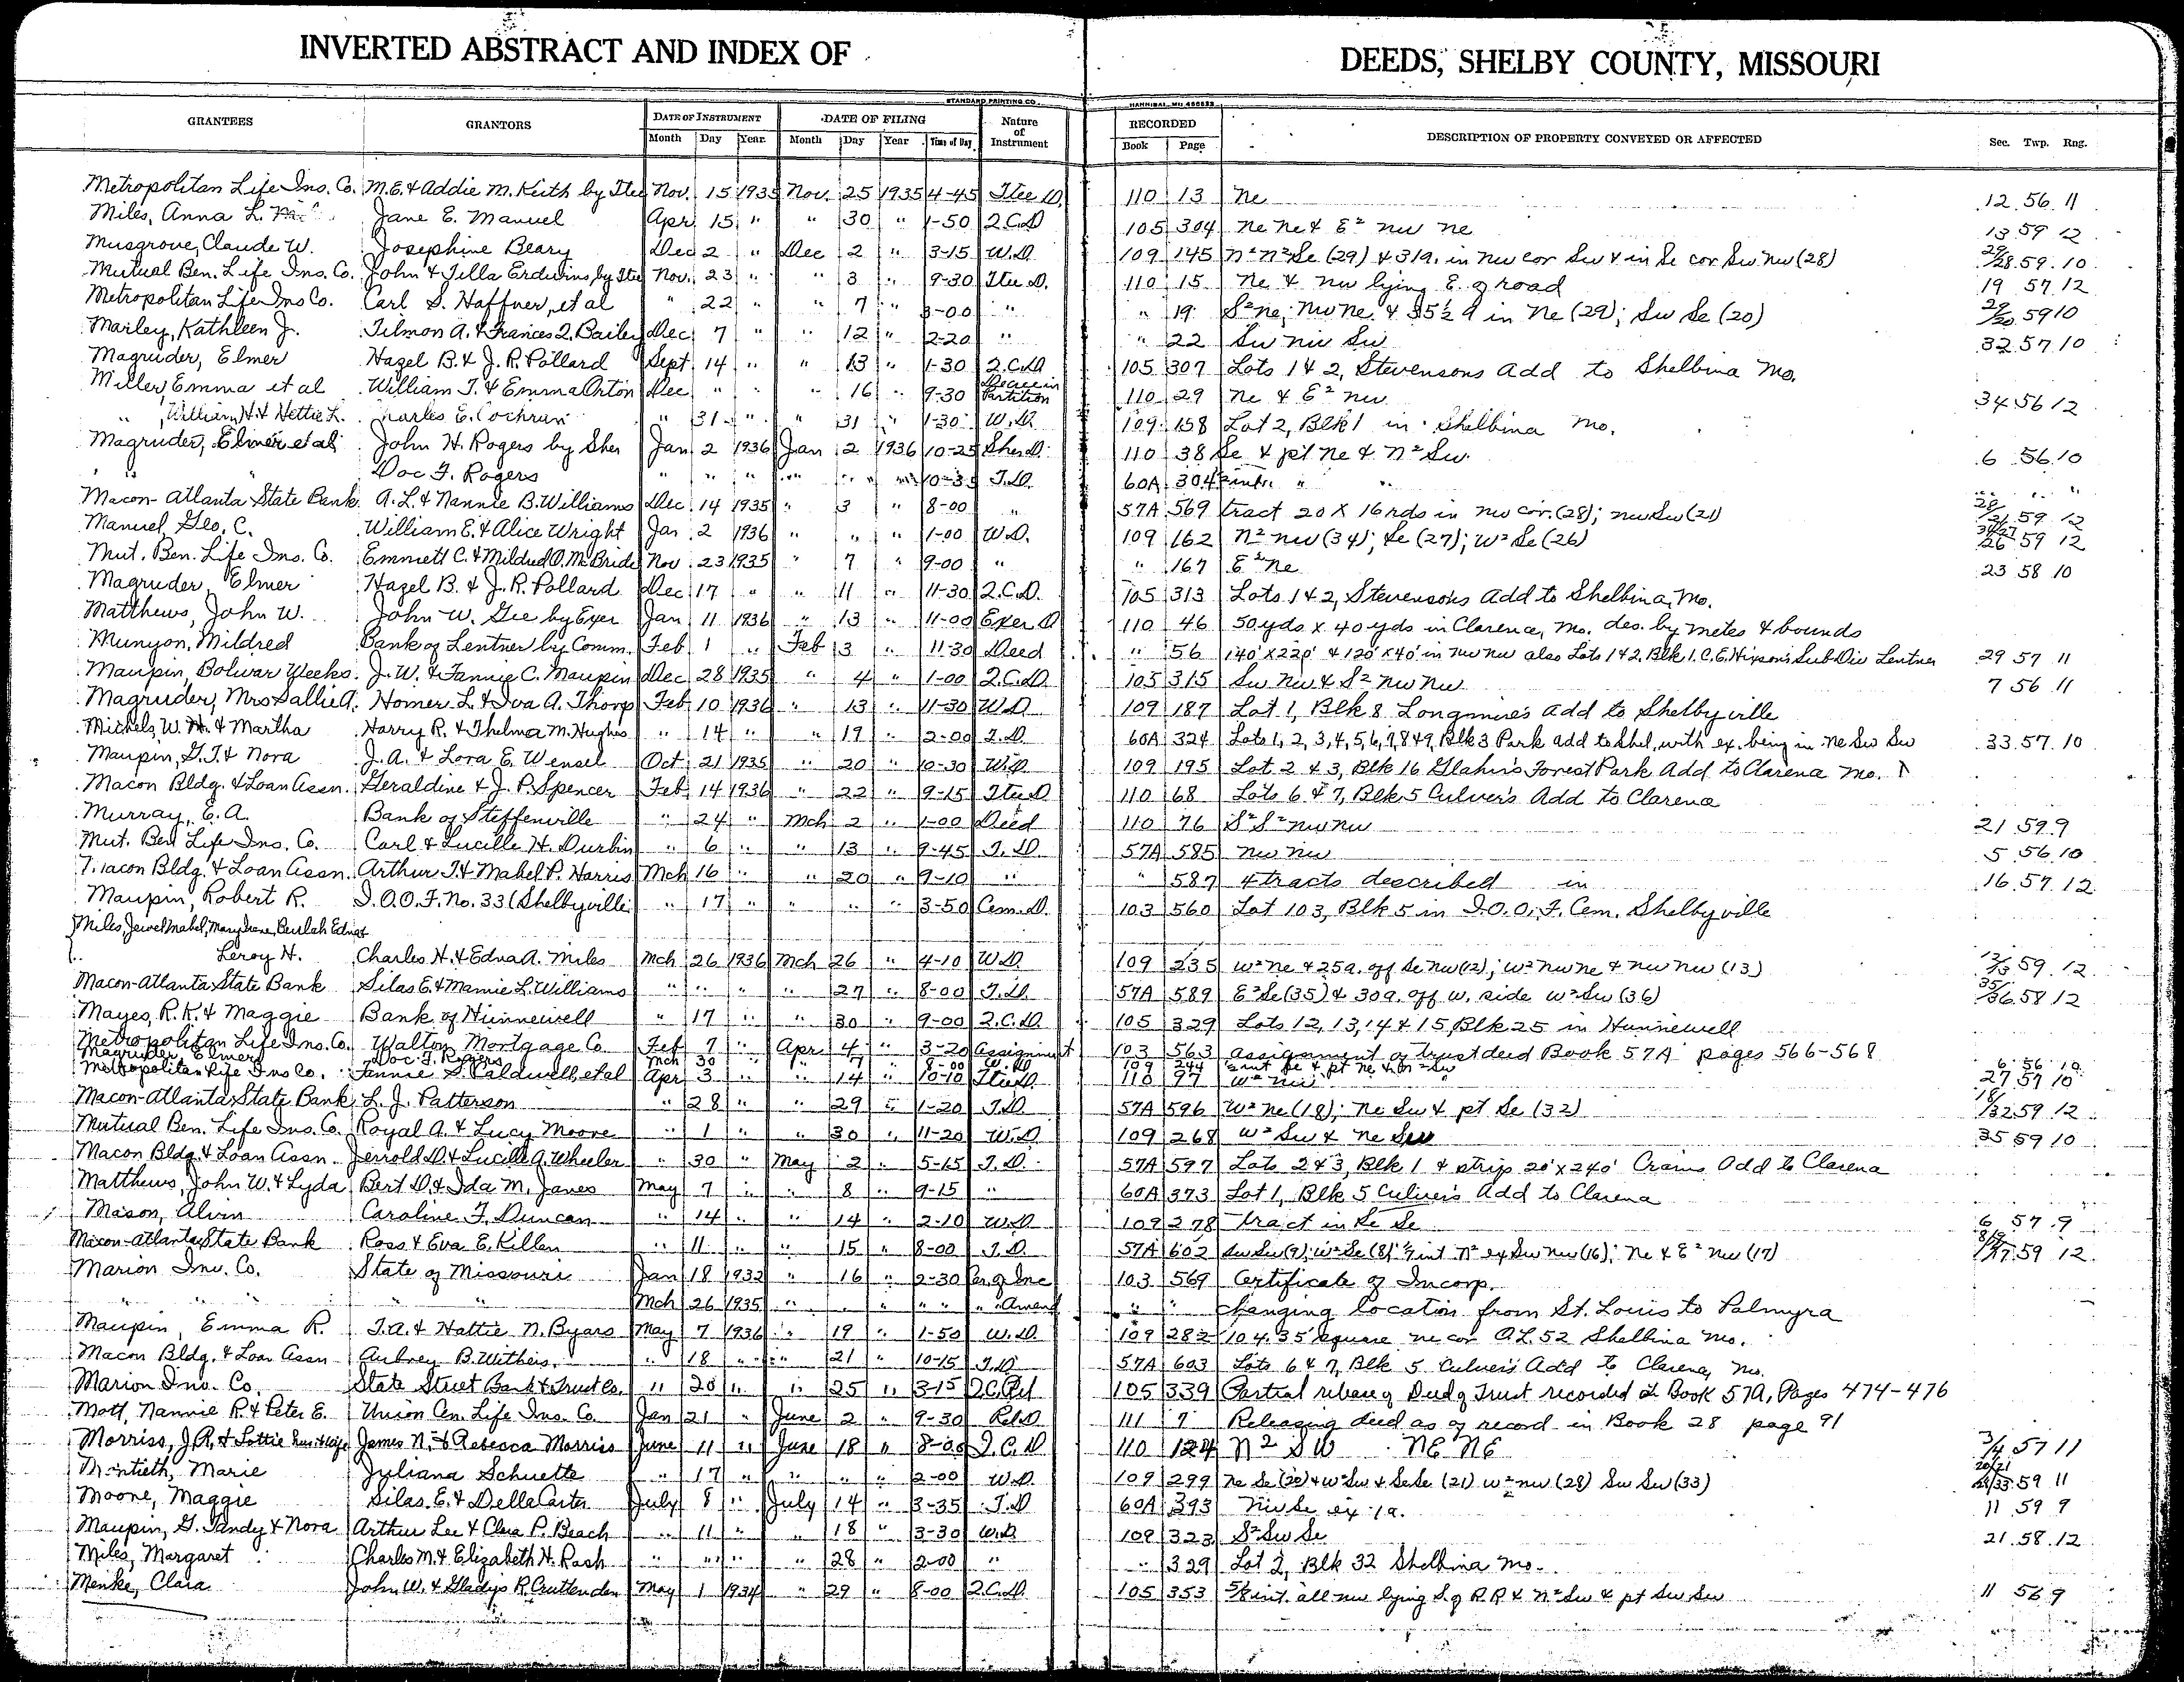 INVERTED ABSTRACT AND INDEX OF DEEDS, SHELBY COUNTY, MISSOURI
STANDARD PRINTING CO. HANNIBAL, MO.
GRANTEES GRANTORS DATE OF INSTRUMENT DATE OF FILING Nature of Instrument RECORDED DESCRIPTION OF PROPERTY CONVEYED OR AFFECTED Sec. Twp. Rng.
Month Day Year Month Day Year Time of Day Book Page
Metropolitan Life Ins. Co. M.E. & Addie M. Keith by Ttee Nov. 15 1935 Nov. 25 1935 4-45 Ttee D. 110 13 Ne 12 56 11
Miles, Anna L. Jane E. Manuel Apr 15 " " 30 " 1-50 Q.C.D 105 304 Ne Ne & E² Nw Ne 13 59 12
Musgrove, Claude W. Josephine Beary Dec 2 " Dec 2 " 3-15 W.D. 109 145 N² N² Se (29) & 31a. in Nw cor Sw & in Se cor Sw Nw (28) 29/28 59 10
Mutual Ben. Life Ins. Co. John & Tella Erdwins by Ttee Nov. 23 " " 3 " 9-30 Ttee D. 110 15 Ne & Nw lying E. of road 19 57 12
Metropolitan Life Ins Co. Carl S. Haffner, et al " 22 " " 7 " 3-00 " " 19 S² Ne; Nw Ne & 35½ a in Ne (29); Sw Se (20) 29/20 59 10
Marley, Kathleen J. Tilmon A. & Frances Q. Bailey Dec 7 " " 12 " 2-20 " " 22 Sw Nw Sw 32 57 10
Magruder, Elmer Hazel B. & J. R. Pollard Sept 14 " " 13 " 1-30 Q.C.D 105 307 Lots 1 & 2, Stevensons Add to Shelbina Mo.
Miller, Emma et al William T. & Emma Orton Dec " " " 16 " 9-30 Decree in Partition 110 29 Ne & E² Nw 34 56 12
" , William H. & Hettie L. Charles E. Cochrun " 31 " " 31 " 1-30 W.D. 109 158 Lot 2, Blk 1 in Shelbina Mo.
Magruder, Elmer et al John H. Rogers by Sher Jan 2 1936 Jan 2 1936 10-25 Sher D. 110 38 Se & pt Ne & N² Sw 6 56 10
" " Doc F. Rogers " " " " " " 10-35 T.D. 60A 304 " " " "
Macon-Atlanta State Bank A. L. & Nannie B. Williams Dec 14 1935 " 3 8-00 " 57A 569 tract 20 X 16 rds in Nw cor. (28); Nw Sw (21) 28/21 59 12
Manuel, Geo, C. William E. & Alice Wright Jan 2 1936 " " " 1-00 W.D. 109 162 N² Nw (34); Se (27); W² Se (26) 34/27/26 59 12
Mut. Ben. Life Ins. Co. Emmett C. & Mildred O. McBride Nov 23 1935 " 7 " 9-00 " " 167 E² Ne 23 58 10
Magruder, Elmer Hazel B. & J. R. Pollard Dec 17 " " 11 " 11-30 Q.C.D. 105 313 Lots 1 & 2, Stevensons Add to Shelbina, Mo.
Matthews, John W. John W. Gee by Exer Jan 11 1936 " 13 " 11-00 Exer D 110 46 50 yds x 40 yds in Clarence, Mo. des. by metes & bounds
Munyon, Mildred Bank of Lentner by Comm. Feb 1 " Feb 3 " 11-30 Deed " 56 140' X 220' & 120' X 40' in Nw Nw also Lots 1 & 2, Blk 1. C.E. Hixson's Sub Div Lentner 29 57 11
Maupin, Bolivar Weeks J. W. & Fannie C. Maupin Dec 28 1935 " 4 " 1-00 Q.C.D. 105 315 Sw Nw & S² Nw Nw 7 56 11
Magruder, Mrs Sallie A. Homer L. & Iva A. Thorp Feb 10 1936 " 13 " 11-30 W.D. 109 187 Lot 1, Blk 8 Longmire's Add to Shelbyville
Michels, W. H. & Martha Harry R. & Thelma M. Hughes " 14 " " 19 " 2-00 T.D. 60A 324 Lots 1, 2, 3, 4, 5, 6, 7, 8 & 9, Blk 3 Park add to Shel, with ex. being in Ne Sw Sw 33 57 10
Maupin, G. T. & Nora J. A. & Lora E. Wensel Oct 21 1935 " 20 " 10-30 W.D. 109 195 Lot 2 & 3, Blk 16 Glahn's Forest Park Add to Clarence Mo.
Macon Bldg. & Loan Assn. Geraldine & J. P. Spencer Feb 14 1936 " 22 " 9-15 Ttee D 110 68 Lots 6 & 7, Blk 5 Culver's Add to Clarence
Murray, E. A. Bank of Steffenville " 24 " Mch 2 " 1-00 Deed 110 76 S² S² Nw Nw 21 59 9
Mut. Ben Life Ins. Co. Carl & Lucille H. Durbin " 6 " " 13 " 9-45 T.D. 57A 585 Nw Nw 5 56 10
Macon Bldg. & Loan Assn. Arthur T. & Mabel P. Harris Mch 16 " " 20 " 9-10 " " 587 4 tracts described in 16 57 12
Maupin, Robert R. I.O.O.F. No. 33 (Shelbyville) " 17 " " " " 3-50 Cem. D. 103 560 Lot 103, Blk 5 in I.O.O.F. Cem. Shelbyville
Miles, Jewel Mabel, Mary Irene, Beulah Edna &
Leroy H. Charles H. & Edna A. Miles Mch 26 1936 Mch 26 " 4-10 W.D 109 235 W² Ne & 25a. off Se Nw (12); W² Nw Ne & Nw Nw (13) 12/13 59 12
Macon-Atlanta State Bank Silas E. & Mamie L. Williams " " " " 27 " 8-00 T.D. 57A 589 E² Se (35) & 30a. off W. side W² Sw (36) 35/36 58 12
Mayes, R. K. & Maggie Bank of Hunnewell " 17 " " 30 " 9-00 Q.C.D. 105 329 Lots 12, 13, 14 & 15, Blk 25 in Hunnewell
Metropolitan Life Ins. Co. Walton Mortgage Co Feb 7 " Apr 4 " 3-20 Assignment 103 563 Assignment of trust deed Book 57A pages 566-568
Magruder, Elmer Doc F. Rogers Mch 30 " " 7 " 8-00 W.D. 109 244 Se & pt Ne & N² Sw 6 56 10
Metropolitan Life Ins Co. Fannie S. Caldwell, et al Apr 3 " " 14 " 10-10 Ttee D 110 97 W² Nw 27 57 10
Macon-Atlanta State Bank L. J. Patterson " 28 " " 29 " 1-20 T.D. 57A 596 W² Ne (18); Ne Sw & pt Se (32) 18/32 59 12
Mutual Ben. Life Ins. Co. Royal A. & Lucy Moore " 1 " " 30 " 11-20 W.D. 109 268 W² Sw & Ne Sw 35 59 10
Macon Bldg. & Loan Assn. Jerrold D. & Lucille A. Wheeler " 30 " May 2 " 5-15 T.D. 57A 597 Lots 2 & 3, Blk 1 & strip 20' x 240' Crains Add to Clarence
Matthews, John W. & Lyda Bert D. & Ida M. Janes May 7 " " 8 " 9-15 " 60A 373 Lot 1, Blk 5 Culver's Add to Clarence
Mason, Alvin Caroline F. Duncan " 14 " " 14 " 2-10 W.D. 109 278 tract in Se Se 6 57 9
Macon-Atlanta State Bank Ross & Eva E. Killen " 11 " " 15 " 8-00 T.D. 57A 602 Sw Sw (9); W² Se (8); int N² ex Sw Nw (16); Ne & E² Nw (17) 59 12
Marion Inv. Co. State of Missouri Jan 18 1932 " 16 " 2-30 Cer. of Inc 103 569 Certificate of Incorp.
" " " " Mch 26 1935 " " " " " Amend " " Changing location from St. Louis to Palmyra
Maupin, Emma R. T. A. & Hattie N. Byars May 7 1936 " 19 " 1-50 W.D. 109 282 104.35' square Ne cor O.L. 52 Shelbina Mo.
Macon Bldg. & Loan Assn Aubrey B. Withers " 18 " " 21 " 10-15 T.D. 57A 603 Lots 6 & 7, Blk 5 Culver's Add to Clarence, Mo.
Marion Inv. Co. State Street Bank & Trust Co. " 20 " " 25 " 3-15 Q.C. Rel 105 339 Partial release of Deed of Trust recorded in Book 57A, Pages 474-476
Mott, Nannie R. & Peter E. Union Cen. Life Ins. Co Jan 21 " June 2 " 9-30 Rel D 111 7 Releasing deed as of record in Book 28 page 91
Morriss, J. A. & Lottie hus & wife James N. & Rebecca Morriss June 11 " June 18 " 8-00 Q.C.D 110 124 N² SW NE NE 3/4 57 11
Montieth, Marie Juliana Schuette " 17 " " " " 2-00 W.D. 109 299 Ne Se (20) & W² Sw & Se Se (21) W² Nw (28) Sw Sw (33) 20/21 28/33 59 11
Moore, Maggie Silas E. & Della Carter July 8 " July 14 " 3-35 T.D 60A 393 Nw Se ex 1a. 11 59 9
Maupin, G. Tandy & Nora Arthur Lee & Clara P. Beach " 11 " " 18 " 3-30 W.D. 109 323 S² Sw Se 21 58 12
Miles, Margaret Charles M. & Elizabeth H. Rash " " " " 28 " 2-00 " " 329 Lot 2, Blk 32 Shelbina Mo.
Menke, Clara John W. & Gladys R. Cruttenden May 1 1934 " 29 " 8-00 Q.C.D. 105 353 5/8 int. all Nw lying S. of R.R & N² Sw & pt Sw Sw 11 56 9